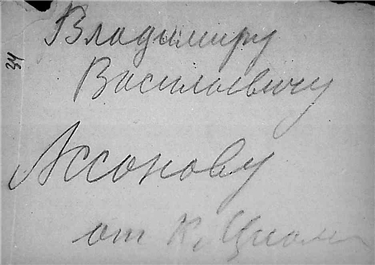 34
Владимиру
Васильевичу
Ассонову
от К. Циолк